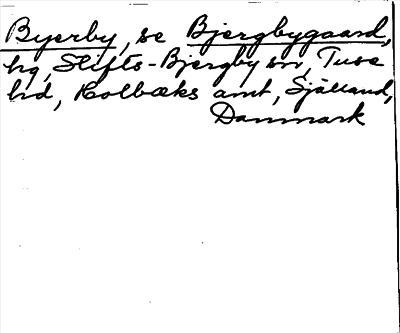 Byerby, se Bjergbygaard,
hg, Slifts-Bjergby sn, Tuse
hd, Holbæks amt, Själland,
Danmark